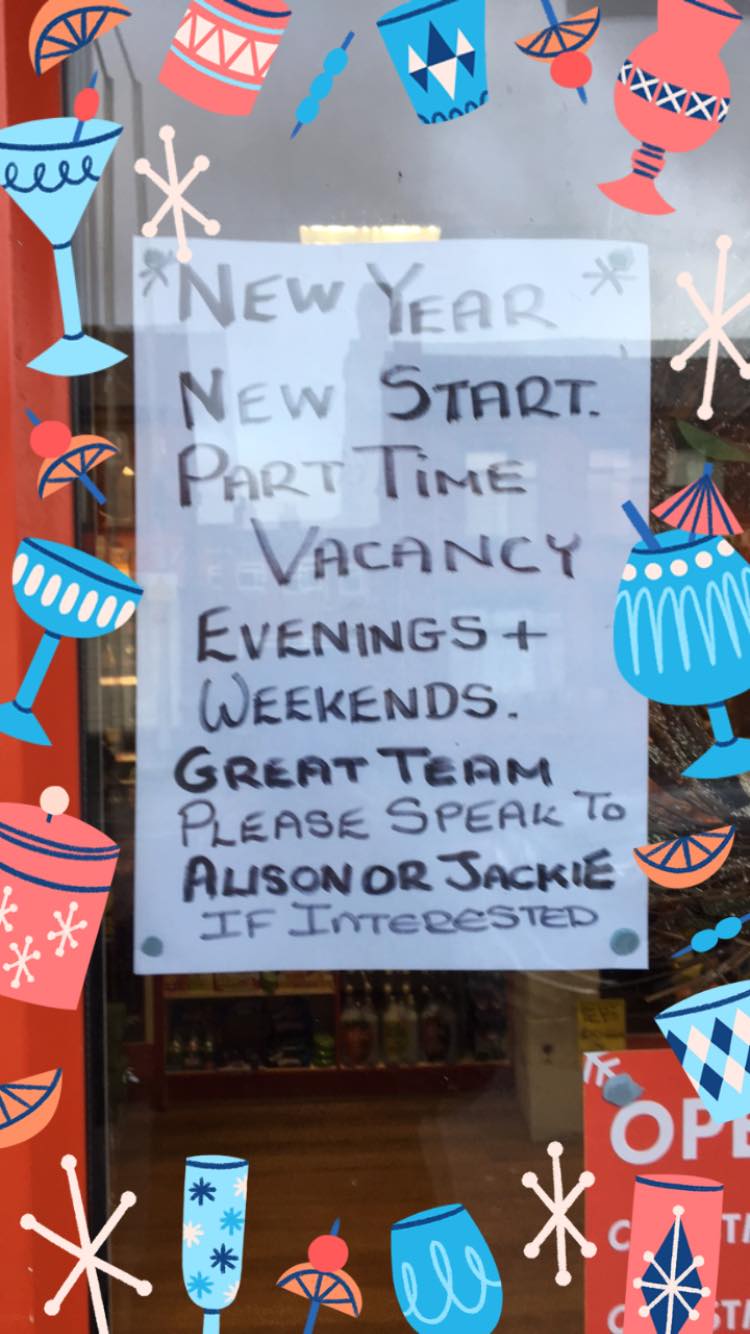 NEW YEAR
NEW START.
PART TIME
VACANCY
EVENINGS +
WEEKENDS.
GREAT TEAM
PLEASE SPEAK TO
ALISON OR JACKIE
IF INTERESTED